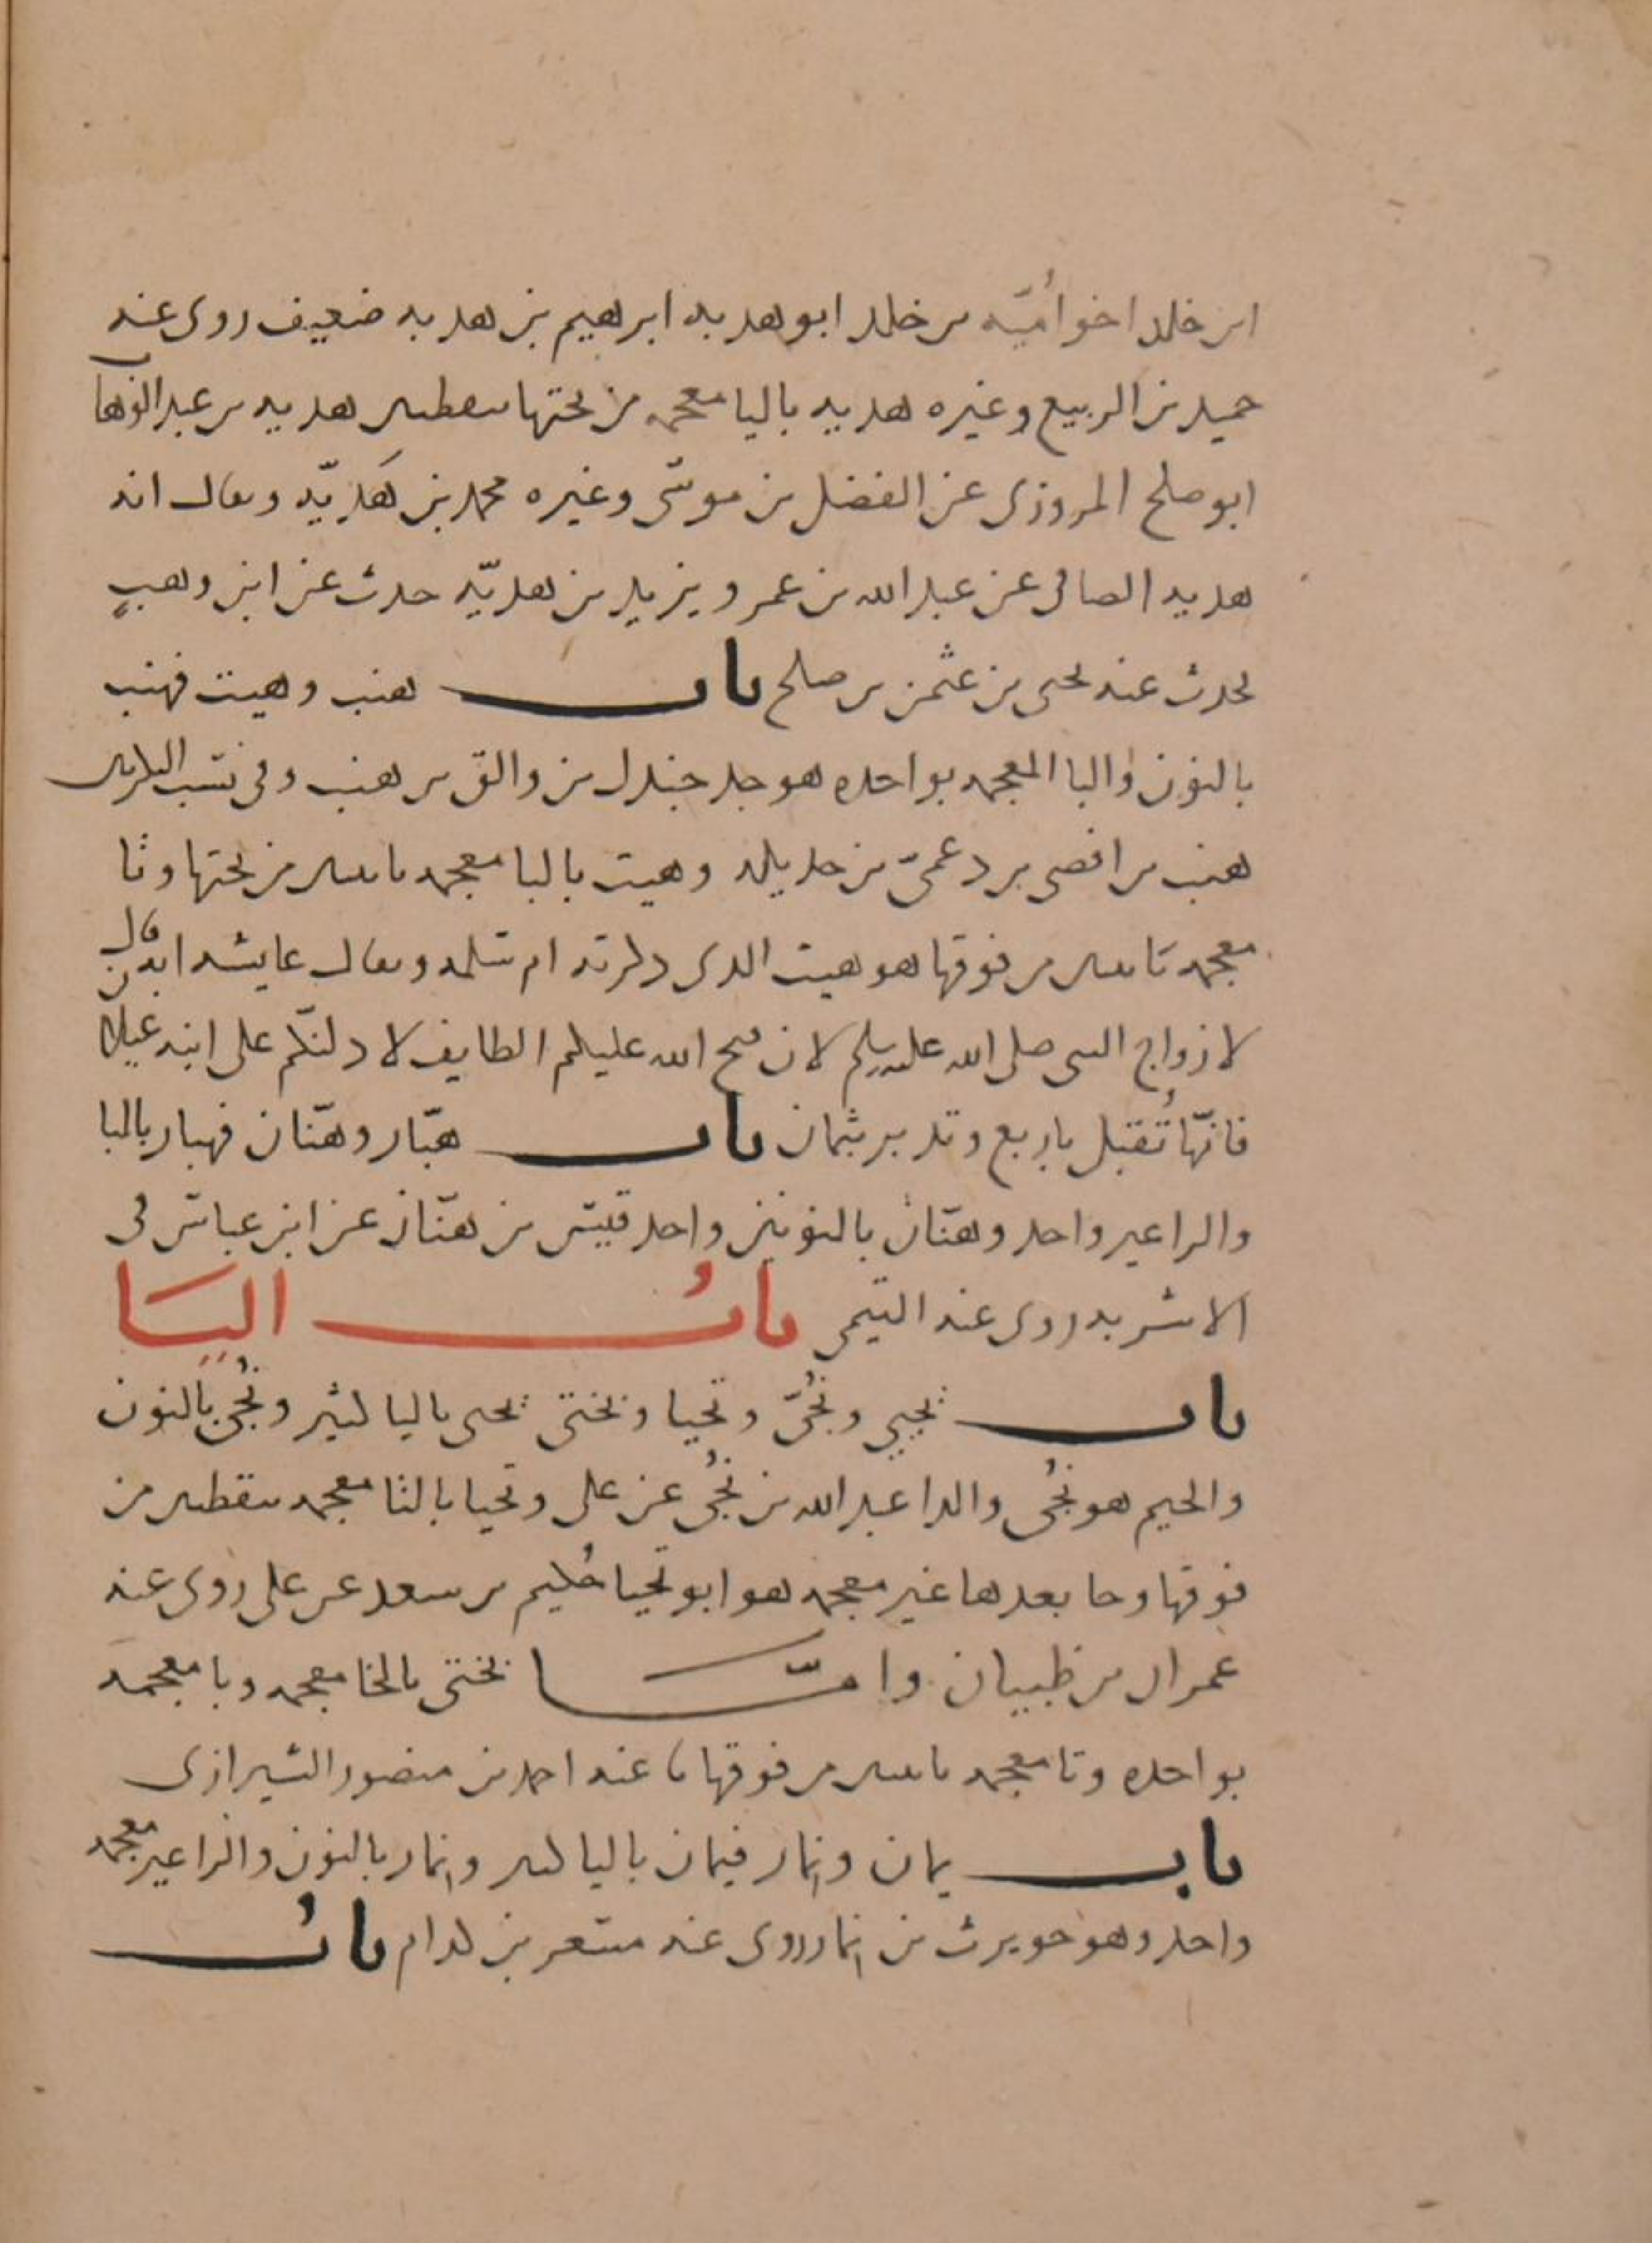 ابن خلد اخو امَيّه بن خلد ابو هدبه ابرهيم بن هدبه ضعيف روى عنه
حميد بن الربيع وغيره هديه باليا معجمه من تحتها بنقطتين هديه بن عبد الوهاب
ابو صلح المروزى عن الفضل بن موسى وغيره محمد بن هَديّه ويقال انه
هديه الصدفى عن عبد الله بن عمرو يزيد بن هديّه حدث عن ابن وهبٍ
يحدث عنه يحيى بن عثمن بن صلح باب هنب وهيت فهنب
بالنون والبا المعجمه بواحده هو جد جندل بن والق بن هنب وفى نسب
هنب بن افصى بن دعمىّ بن جديله وهيت باليا معجمه باثنين من تحتها وتا
معجمه باثنين من فوقها هو هيت الذى ذكرته ام سلمه ويقال عايشه انه قال
لازواج النبى صلى الله عليه وسلم لان فتح الله عليكم الطايف لادلنّكم على ابنه غيلان
فانّها تُقبل باربع وتدبر بثمان باب هبّار وهنّان فهبار بالبا
والرا غير واحد وهنّان بالنونين واحد قيس بن هنّان عن ابن عباس فى
الاشربه روى عنه التيمى بابُ اليَا
باب يحيى ونُجىّ وتحيا وبختى يحيى باليا كثير ونُجى بالنون
والجيم هو نُجى والد عبد الله بن نُجى عن على وتحيا بالتا معجمه بنقطتين من
فوقها وحا بعدها غير معجمه هو ابو تحيا حُكيم بن سعد عن على روى عنه
عمران بن ظبيان وامّا بختى بالخا معجمه وبا معجمه
بواحده وتا معجمه باثنين من فوقها نا عنه احمد بن منصور الشيرازى
باب يمان ونمار فيمان باليا كثير ونمار بالنون والرا غير معجمه
واحد وهو حويرث بن نمار روى عنه مسعر بن كدام بابُ